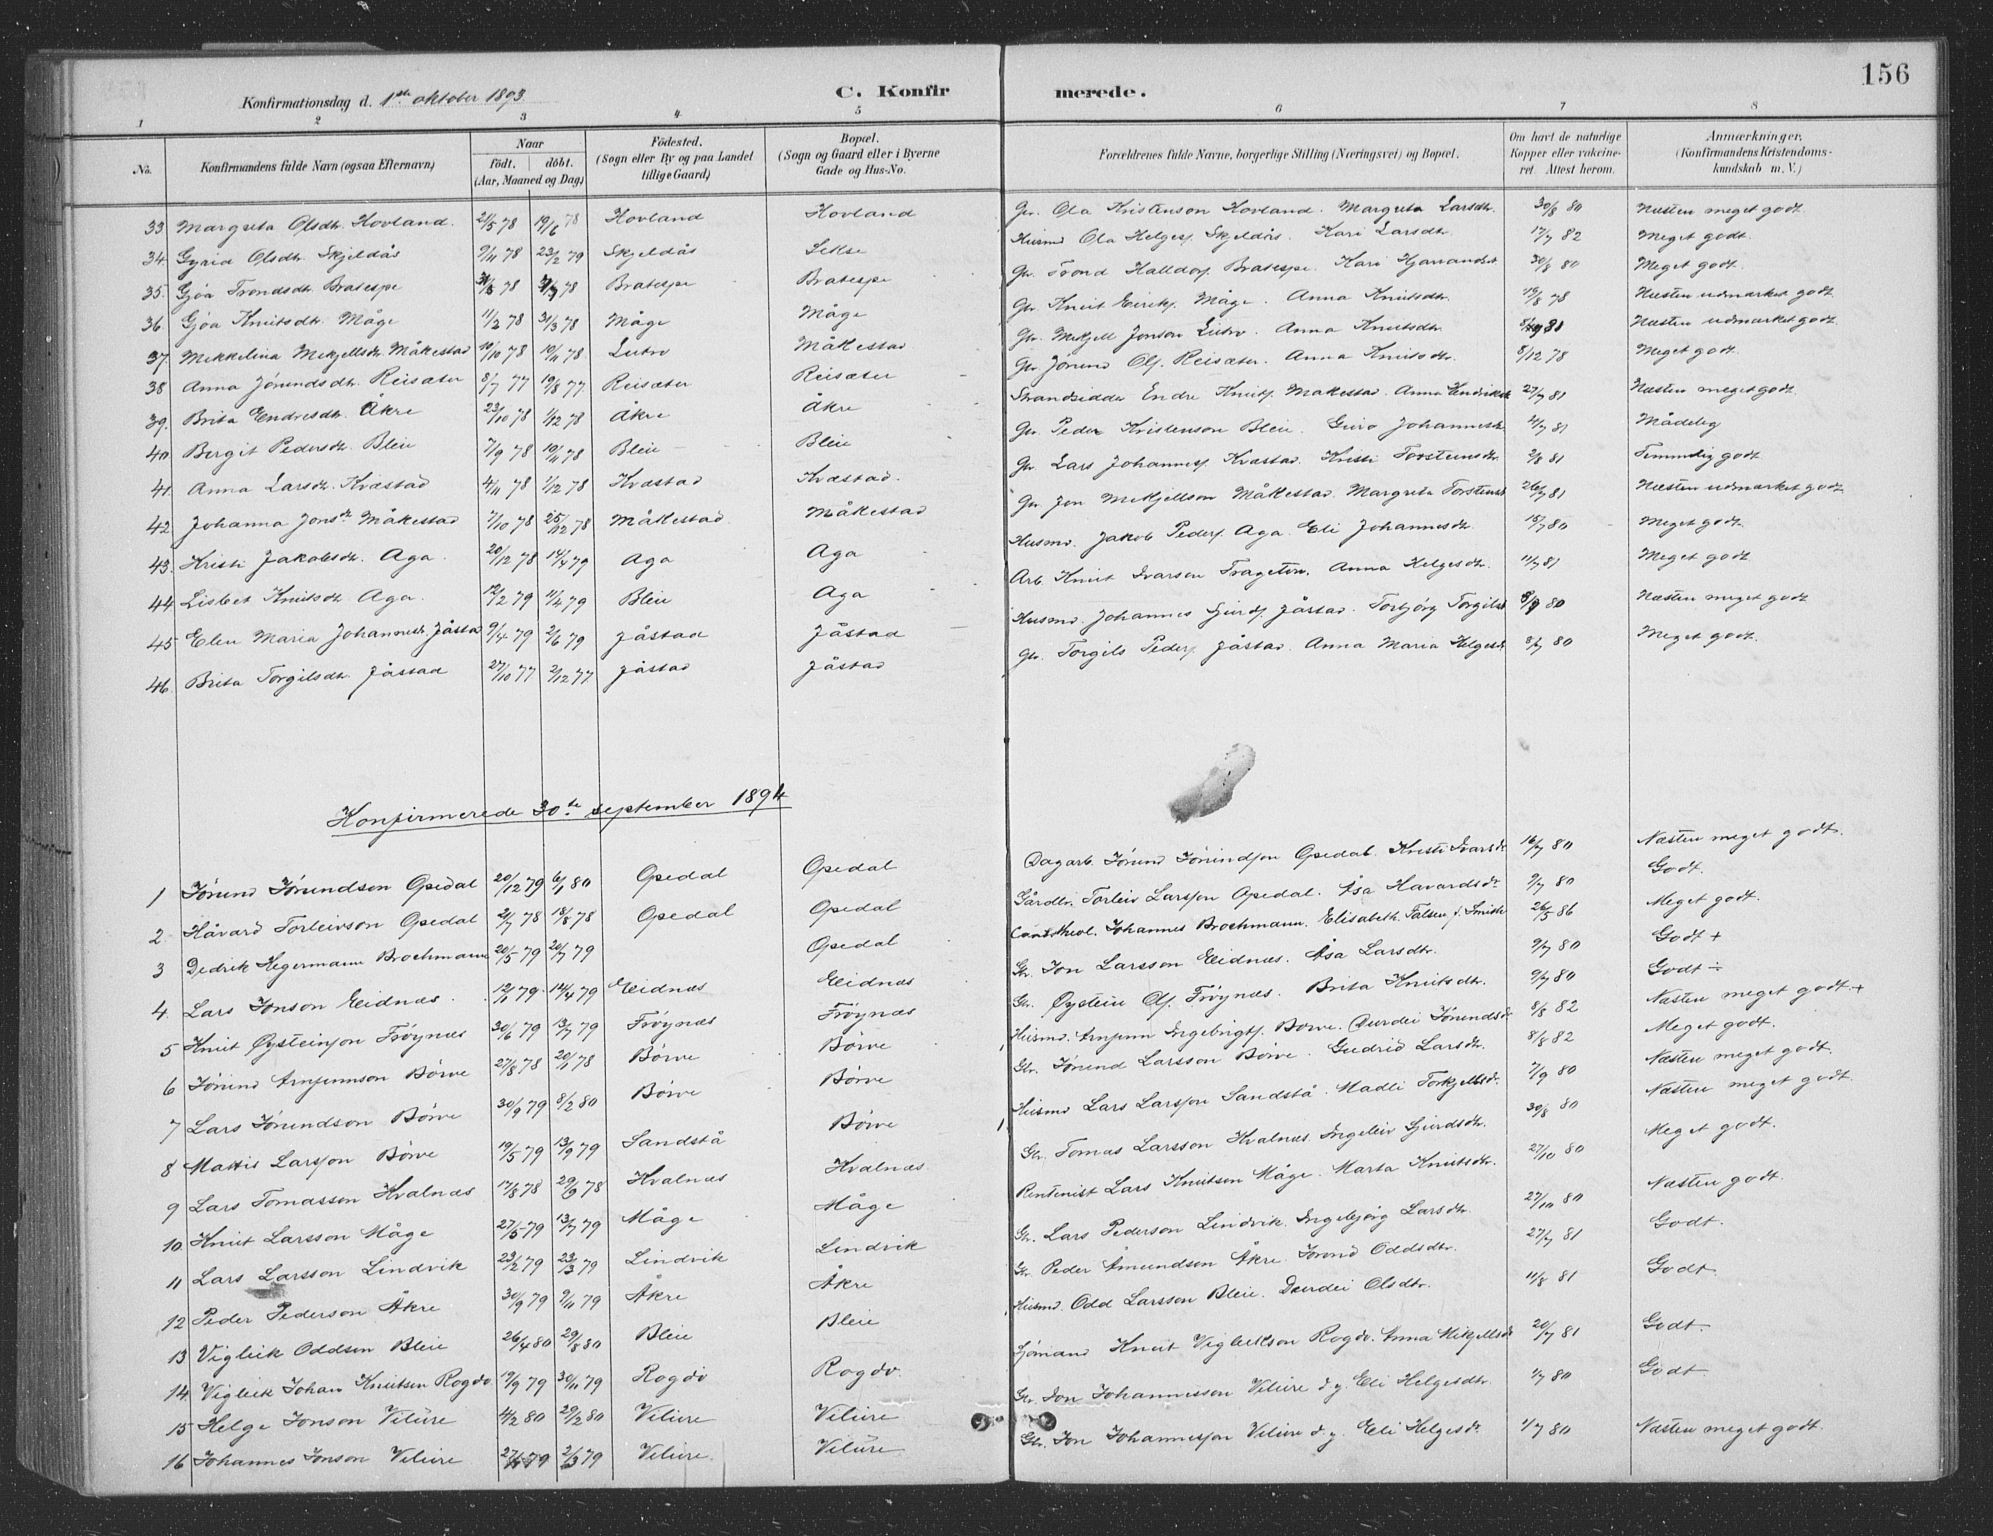 156
Konfirmationsdag d. 1ste oktober 1893. C. Konfirmerede.
1 2 3 4 5 6 7 8
No. Konfirmandens fulde Navn (ogsaa Efternavn) Naar født. døbt. (Aar, Maaned og Dag) Fødested. (Sogn eller By og paa Landet tillige Gaard) Bopæl. (Sogn og Gaard eller i Byerne Gade og Hus-No. Forældrenes fulde Navne, borgerlige Stilling (Næringsvei) og Bopæl. Om havt de naturlige Kopper eller vakcineret. Attest herom. Anmærkninger. (Konfirmandens Kristendomskundskab m. V.)
33 Margreta Olsdtr. Hovland. 21/5 78 19/6 78 Hovland Hovland Gr. Ola Kristenson Hovland. Margreta Larsdtr. 30/8 80 Næsten meget godt
34. Gyrid Olsdtr. Skjeldås 9/11 78 23/2 79 Skjeldås Sekse Husmd Ola Helges. Skjeldås. Kari Larsdtr. 17/7 82 Meget godt.
35. Gjøa Trondsdtr. Bratespe 78 78 Bratespe Bratespe Gr. Trond Halldors. Bratespe. Kari 30/8 80 Meget godt.
36. Gjøa Knutsdtr. Måge 11/2 78 31/3 78 Måge Måge Gr. Knut Eiriks. Måge. Anna Knutsdtr. 78 Næsten udmærket godt
37. Mekkelina Mikjellsdr. Måkestad 10/10 78 10/11 78 Lutro Måkestad Gr. Mikjell Jonson Lutro. Anna Knutsdtr. 81 Næsten udmærket godt.
38 Anna Jørundsdtr. Reisæter 8/7 77 19/8 77 Reisæter Reisæter Gr. Jørund Ols. Reisæter. Anna Knutsdtr. 8/12 78 Meget godt.
39. Brita Endresdtr. Åkre 23/10 78 1/12 78 Åkre Åkre Strandsidder Endre Knuts. Måkestad. Anna 27/7 81 Næsten meget godt.
40 Bergit Pedersdtr. Bleie 7/9 78 10/11 78 Bleie Bleie Gr. Peder Kristenson Bleie. Guro Johannesdtr. 81 Mådelig
41. Anna Larsdtr. Kvæstad 4/11 78 1/12 78 Kvæstad Kvæstad. Gr. Lars Johannes. Kvæstad. Kristi Torsteinsdtr. 2/8 81 Temmelig godt.
42. Johanna Jonsdtr Måkestad 7/10 78 25/12 78 Måkestad. Måkestad Gr. Jon Mikjellson Måkestad. Margreta Torsteinsd 26/7 81 Næsten udmærket godt
43. Kristi Jakobsdtr. Aga. 20/12 78 14/4 79 Aga Aga Husmd. Jakob Peders. Aga. Eli Johannesdtr. 15/7 80 Meget godt.
44 Lisbet Knutsdtr. Aga. 12/2 79 11/4 79 Bleie Aga Arb. Knut Ivarson Trageton. Anna Helgesdtr. 11/7 81 Meget godt
45 Elen Maria Johannesdr. Jåstad 9/4 79 2/6 79 Jåstad Jåstad Husmd. Johannes Sjurds. Jåstad. Torbjørg Torgilsd. 80 Næsten meget godt
46. Brita Torgilsdtr. Jåstad 27/10 77 2/12 77 Jåstad Jåstad Gr. Torgils Peders. Jåstad. Anna Maria Helgesd. 80 Meget godt.
Konfirmerede 30te september 1894
1 Jørund Jørundson Opedal 20/12 79 6/1 80 Opedal Opedal Dagarb. Jørund Jørundson Opedal. Kristi Ivarsdr 16/7 80 Næsten meget godt.
2 Håvard Torleivson Opedal 21/7 78 18/8 78 Opedal Opedal Gårdbr. Torleiv Larsson Opedal. Åsa Havardsdr 9/7 80 Godt.
3 Dedrik Hegermann Brochmann 20/5 79 20/7 79 Opedal Cand. theol. Johannes Brochmann. Elisabeth Falsen f. Smith 26/5 86 Meget godt.
4. Lars Jonson Eidnæs. 79. 14/4 79 Eidnæs Eidnæs Gr. Jon Larsson Eidnæs. Åsa Larsdtr. 9/7 80 Godt +
5 Knut Øysteinson Frøynæs 30/6 79 13/7 79 Frøynæs Frøynæs Gr. Øystein Ols. Frøynæs. Brita Knutsdtr. 9/7 80 Godt ÷
6 Jørund Arnfinnson Børve 27/8 78 78 Børve Børve Husmd. Arnfinn Ingebrigts. Børve. Durdei Jørundsdr 8/8 82 Næsten meget godt. +
7 Lars Jørundson Børve 30/9 79 8/2 80 Børve Børve Gr. Jørund Larsson Børve. Gudrid Larsdtr. 8/8 82 Meget godt.
8 Mattis Larsson Børve 19/5 79 13/9 79 Sandstå Børve Husmd Lars Larsson Sandstå. Madli Torkjellsdr 7/9 80 Næsten meget godt.
9 Lars Tomasson Kvalnæs 17/8 78 29/9 78 Kvalnæs Kvalnæs Gr. Tomas Larsson Kvalnæs. Ingeleiv Sjurdsdtr. 30/8 80 Næsten meget godt.
10 Knut Larsson Måge 27/5 79 13/7 79 Måge Måge Rentenist Lars Knutson Måge. Marta Knutsdtr. 27/10 80 Meget godt.
11 Lars Larsson Lindvik 23/2 79 23/3 79 Lindvik Lindvik Gr. Lars Pederson Lindvik. Ingebjørg Larsdtr. 27/10 80 Næsten godt.
12 Peder Pederson Åkre 30/9 79 9/11 79 Åkre Åkre Gr. Peder Åmundson Åkre. Jorond Oddsdtr. 27/7 81 Godt.
13 Vigleik Oddson Bleie 26/4 80 29/8 80 Bleie Bleie Husmd. Odd Larsson Bleie. Durdei Olsdtr. 11/8 81 Godt.
14. Vigleik Johan Knutson Rogdo 19/9 79 30/11 79 Rogdo Rogdo. Sjømand Knut Vigleikson Rogdo. Anna Mikjellsdr 20/7 81 Godt.
15 Helge Jonson Vilure 4/2 80 29/2 80 Vilure Vilure Gr. Jon Johannesson Vilure d. y. Eli Helgesdtr. 1/7 80 Godt
16 Johannes Jonson Vilure 79 2/3 79 Vilure. Vilure Gr. Jon Johannesson Vilure d. y. Eli Helgesdr. 1/7 80 Næsten meget godt.